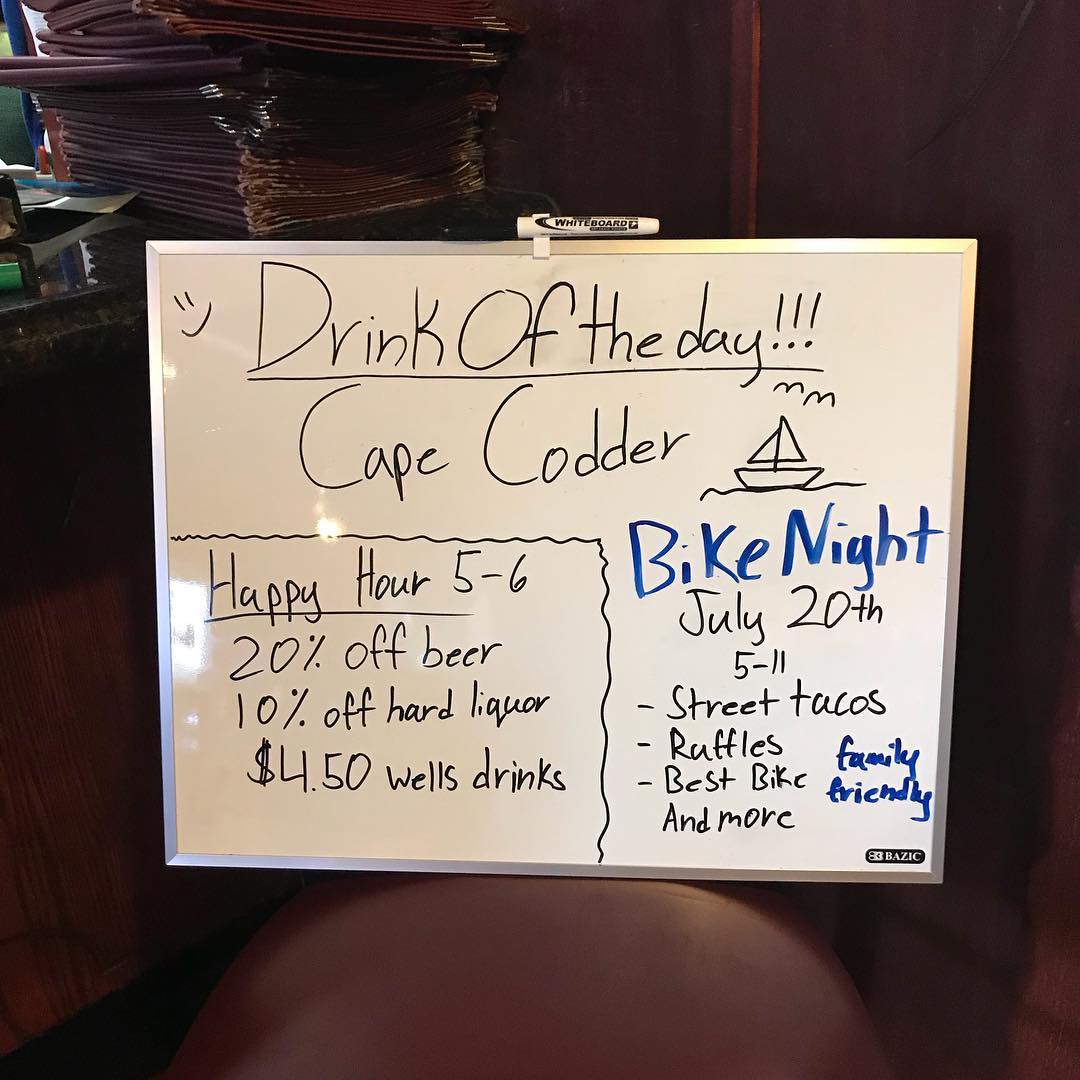 WHITEBOARD
Drink Of the day!!!
Cape Codder
Happy Hour 5-6
20% off beer
10% off hard liquor
$4.50 wells drinks
Bike Night
July 20th
5-11
- Street tacos
- Raffles
- Best Bike
And more
family
friendly
BAZIC